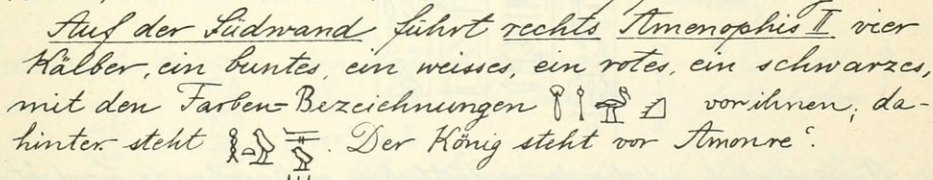 Auf der Südwand führt rechts Amenophis II vier
Kälber, ein buntes, ein weisses, ein rotes, ein schwarzes,
mit den Farben=Bezeichnungen vor ihnen; da-
hinter steht . Der König steht vor Amonreʿ.